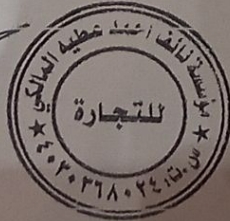 مؤسسة نائف احمد عطيه المالكي
للتجارة
س.ت: ٤٠٣٠٣٦٨٠٢٤